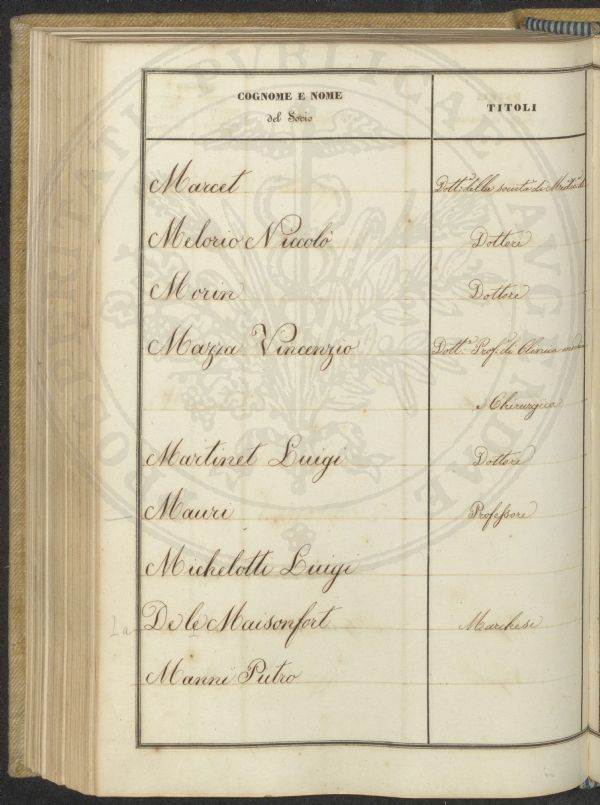 COGNOME E NOME
del Socio
TITOLI
Marcet
Dott.re della società di
Melorio Niccolò
Dottore
Morin
Dottore
Mazza Vincenzio
Dott.e Prof.e di Clinica
e Chirurgica
Martinet Luigi
Dottore
Mauri
Professore
Michelotti Luigi
La
De le Maisonfort
Marchese
Manni Pietro